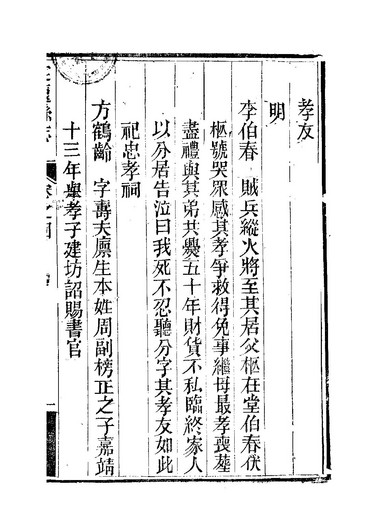 孝友
明
李伯春　賊兵縱火將至其居父柩在堂伯春伏
柩號哭眾感其孝爭救得免事繼母最孝喪葬
盡禮與其弟共爨五十年財貨不私臨終家人
以分居告泣曰我死不忍聽分字其孝友如此
祀忠孝祠
方鶴齡　字壽夫廩生本姓周副榜正之子嘉靖
十三年舉孝子建坊詔賜書官